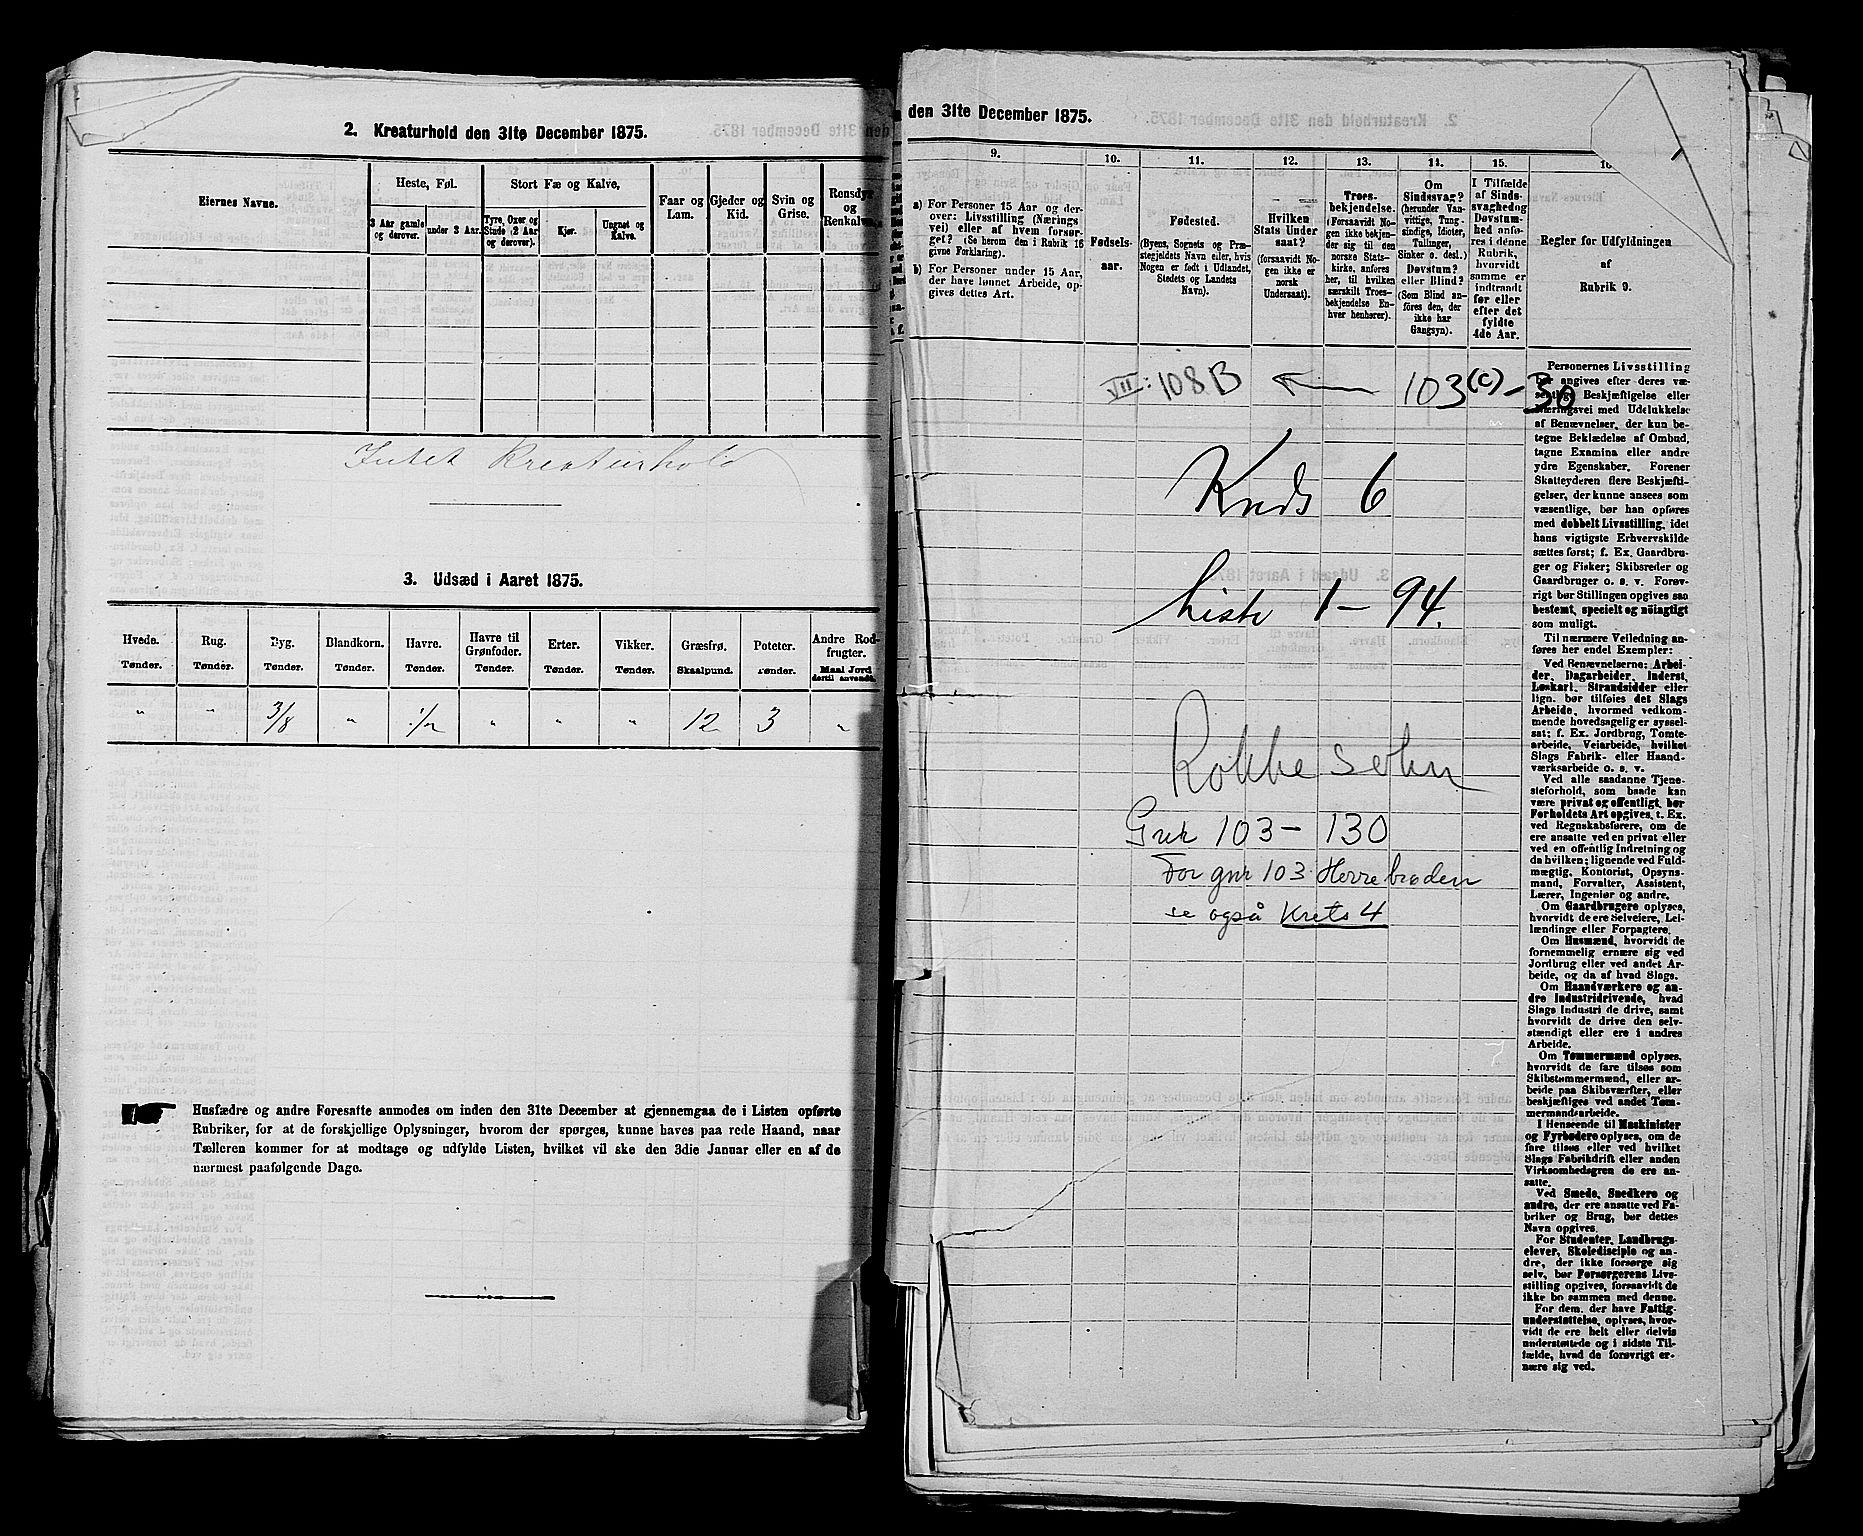 2. Kreaturhold den 31te December 1875.
Eiernes Navne.
Heste, Føl.
3 Aar gamle og derover.
under 3 Aar.
Stort Fæ og Kalve,
Tyre, Oxer og Stude (2 Aar og derover).
Kjør.
Ungnet og Kalve.
Faar og Lam.
Gjeder og Kid.
Svin og Grise.
Rensdyr og Renkalve.
Intet Kreaturhold
3. Udsæd i Aaret 1875.
Hvede. Rug. Byg. Blandkorn. Havre. Havre til Grønfoder. Erter. Vikker. Græsfrø. Poteter. Andre Rodfrugter.
Tønder. Tønder. Tønder. Tønder. Tønder. Tønder. Tønder. Tønder. Skaalpund. Tønder. Maal Jord dertil anvendt.
" " 3/8 " 1/2 " " " 12 3 "
Husfædre og andre Foresatte anmodes om inden den 31te December at gjennemgaa de i Listen opførte
Rubriker, for at de forskjellige Oplysninger, hvorom der spørges, kunne haves paa rede Haand, naar
Tælleren kommer for at modtage og udfylde Listen, hvilket vil ske den 3die Januar eller en af de
nærmest paafølgende Dage.
den 31te December 1875.
9.
a) For Personer 15 Aar og derover: Livsstilling (Næringsvei) eller af hvem forsørget? (Se herom den i Rubrik 16 givne Forklaring).
b) For Personer under 15 Aar, der have lønnet Arbeide, opgives dettes Art.
10.
Fødselsaar.
11.
Fødested.
(Byens, Sognets og Præstegjeldets Navn eller, hvis Nogen er født i Udlandet, Stedets og Landets Navn).
12.
Hvilken Stats Undersaat?
(forsaavidt Nogen ikke er norsk Undersaat).
13.
Troesbekjendelse.
(Forsaavidt Nogen ikke bekjender sig til den norske Statskirke, anføres her, til hvilken særskilt Troesbekjendelse Enhver henhører).
14.
Om Sindssvag?
(herunder Vanvittige, Tungsindige, Idioter, Tullinger, Sinker o. desl.)
Døvstum? eller Blind?
(Som Blind anføres den, der ikke har Gangsyn).
15.
I Tilfælde af Sindssvaghed og Døvstumhed anføres i denne Rubrik, hvorvidt samme er indtraadt før eller efter det fyldte 4de Aar.
Regler for Udfyldningen
af
Rubrik 9.
VII: 108 B ← 103(c)-30
Krds 6
Liste 1-94.
Rokke sokn
Gnr 103 - 130
For gnr 103 Herrebrøden
se også Krets 4
Personernes Livsstilling
bør angives efter deres væ-
sentlige Beskjæftigelse eller
Næringsvei med Udelukkelse
af Benævnelser, der kun be-
tegne Beklædelse af Ombud,
tagne Examina eller andre
ydre Egenskaber. Forener
Skatteyderen flere Beskjæfti-
gelser, der kunne ansees som
væsentlige, bør han opføres
med dobbelt Livsstilling, idet
hans vigtigste Erhvervskilde
sættes først; f. Ex. Gaardbru-
ger og Fisker; Skibsreder og
Gaardbruger o. s. v. Forøv-
rigt bør Stillingen opgives saa
bestemt, specielt og nøiagtigt
som muligt.
Til nærmere Veiledning an-
føres her endel Exempler:
Ved Benævnelserne: Arbei-
der, Dagarbeider, Inderst,
Løskarl, Strandsidder eller
lign. bør tilføies det Slags
Arbeide, hvormed vedkom-
mende hovedsagelig er syssel-
sat; f. Ex. Jordbrug, Tomte-
arbeide, Veiarbeide, hvilket
Slags Fabrik- eller Haand-
værksarbeide o. s. v.
Ved alle saadanne Tjene-
steforhold, som baade kan
være privat og offentligt, bør
Forholdets Art opgives, t. Ex.
ved Regnskabsførere, om de
ere ansatte ved en privat eller
ved en offentlig Indretning og
da hvilken; lignende ved Fuld-
mægtig, Kontorist, Opsyns-
mand, Forvalter, Assistent,
Lærer, Ingeniør og andre.
Om Gaardbrugere oplyses,
hvorvidt de ere Selveiere, Lei-
lændinge eller Forpagtere.
Om Husmænd, hvorvidt de
fornemmelig ernære sig ved
Jordbrug eller ved andet Ar-
beide, og da af hvad Slags.
Om Haandværkere og an-
dre Industridrivende, hvad
Slags Industri de drive, samt
hvorvidt de drive den selv-
stændigt eller ere i andres
Arbeide.
Om Tømmermænd oplyses,
hvorvidt de fare tilsøs som
Skibstømmermænd, eller ar-
beide paa Skibsværfter, eller
beskjæftiges ved andet Tøm-
mermandsarbeide.
I Henseende til Maskinister
og Fyrbødere oplyses, om de
fare tilsøs eller ved hvilket
Slags Fabrikdrift eller anden
Virksomhedsgren de ere an-
satte.
Ved Smede, Snedkere og
andre, der ere ansatte ved Fa-
briker og Brug, bør dettes
Navn opgives.
For Studenter, Landbrugs-
elever, Skoledisciple og an-
dre, der ikke forsørge sig
selv, bør Forsørgerens Livs-
stilling opgives, forsaavidt de
ikke bo sammen med denne.
For dem, der have Fattig-
understøttelse, oplyses, hvor-
vidt de ere helt eller delvis
understøttede og i sidste Til-
fælde, hvad de forøvrigt er-
nære sig ved.